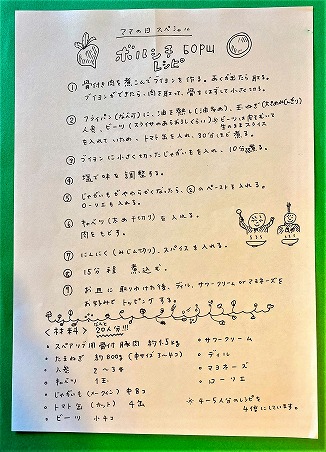 ママの日 スペシャル
ボルシチ БОРЩ
レシピ
① 骨付き肉を煮こんでブイヨンを作る。あくが出たら取る。
ブイヨンができたら、肉を取って、骨をはずして小さく切る。
② フライパン(なべ可)に、油を熱し(油多め)、玉ねぎ
人参、ビーツ
を入れていため、トマト缶を入れ、30分ほど煮る。
③ ブイヨンに小さく切ったじゃがいもを入れ、10分煮る。
④ 塩で味を調整する。
⑤ じゃがいもがやわらかくなったら、②のペーストを入れる。
ローリエも入れる。
⑥ キャベツ(太め千切り)を入れる。
肉をもどす。
⑦ にんにく(みじん切り)、スパイスを入れる。
⑧ 15分程 煮込む。
⑨ お皿に取りわけた後、ディル、サワークリーム or マヨネーズを
お好みで トッピングする。
<材料> 20人分!!!
・スペアリブ用 骨付 豚肉 約1.5kg
・たまねぎ 約800g (中サイズ 3~4コ)
・人参 2~3本
・キャベツ 1玉
・じゃがいも (メークイン) 中8コ
・トマト缶 (カット) 4缶
・ビーツ 小4コ
・サワークリーム
・ディル
・マヨネーズ
・ローリエ
※ 4~5人分のレシピを
4倍にしています。